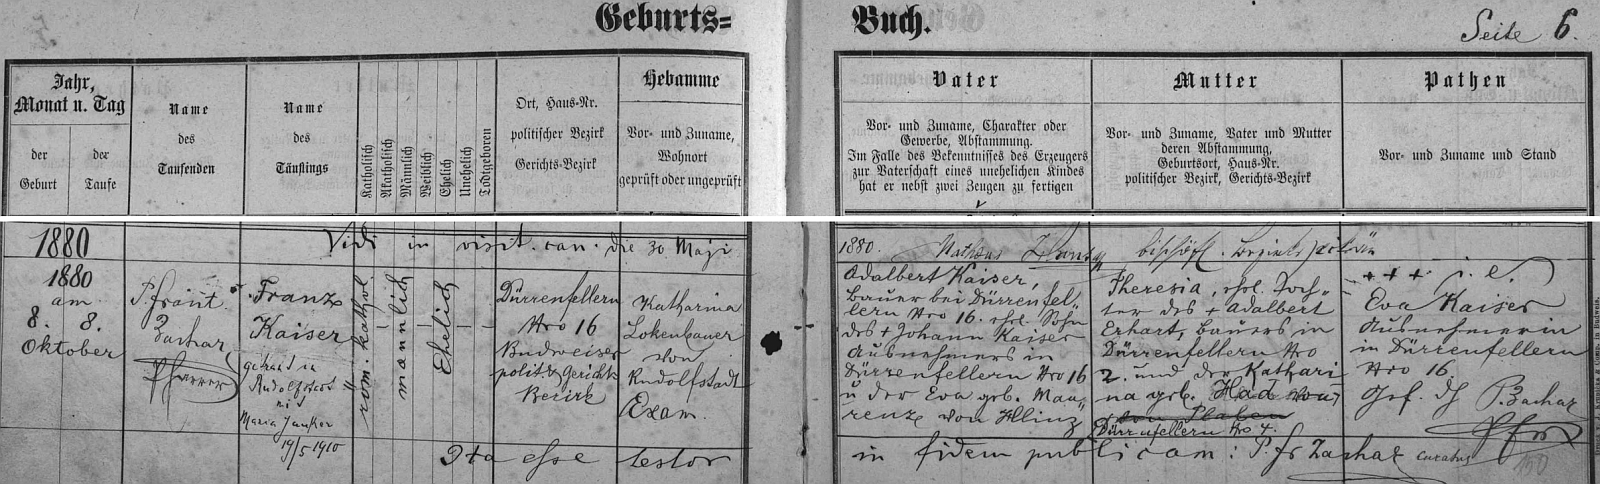 Geburts=
Buch.
Seite 6.
Jahr,
Monat u. Tag
der
Geburt
der
Taufe
Name
des
Taufenden
Name
des
Täuflings
Katholisch
Akatholisch
Männlich
Weiblich
Ehelich
Unehelich
Todtgeboren
Ort, Haus-Nr.
politischer Bezirk
Gerichts-Bezirk
Hebamme
Vor- und Zuname,
Wohnort
geprüft oder ungeprüft
Vater
Vor- und Zuname, Charakter oder
Gewerbe, Abstammung.
Im Falle des Bekenntnisses des Erzeugers
zur Vaterschaft eines unehelichen Kindes
hat er nebst zwei Zeugen zu fertigen
Mutter
Vor- und Zuname, Vater und Mutter
deren Abstammung,
Geburtsort, Haus-Nr.
politischer Bezirk, Gerichts-Bezirk
Pathen
Vor- und Zuname und Stand
1880
Vidi in visit. can. die 30 Maji
1880.
bischöfl. Bezirks
1880
am
8. 8.
Oktober
P. Frant.
Zachar
Pfarrer
Franz
Kaiser
getraut in
Rudolfstadt
mit
Maria Junker
19/5 1910
röm. kathol.
männlich
Ehelich
Dürrenfellern
Nro 16
Budweiser
polit. & Gerichts
Bezirk
Katharina
Lokenbauer
von
Rudolfstadt
Exam.
Adalbert Kaiser,
Bauer bei Dürrenfel-
lern Nro 16. ehl. Sohn
des + Johann Kaiser
Ausnehmers in
Dürrenfellern Nro 16
u der Eva geb. Mau-
renz von Hlinz
Theresia, ehl. Toch-
ter des + Adalbert
Erhart, Bauers in
Dürrenfellern Nro
2. und der Kathari
na geb. Had von
Dürrnfellern Nro 4.
+++ i. e.
Eva Kaiser
Ausnehmerin
in Dürrenfellern
Nro 16.
P. Zachar
Pfr
Ita esse testor
in fidem publicam: P. Fr Zachar curatus